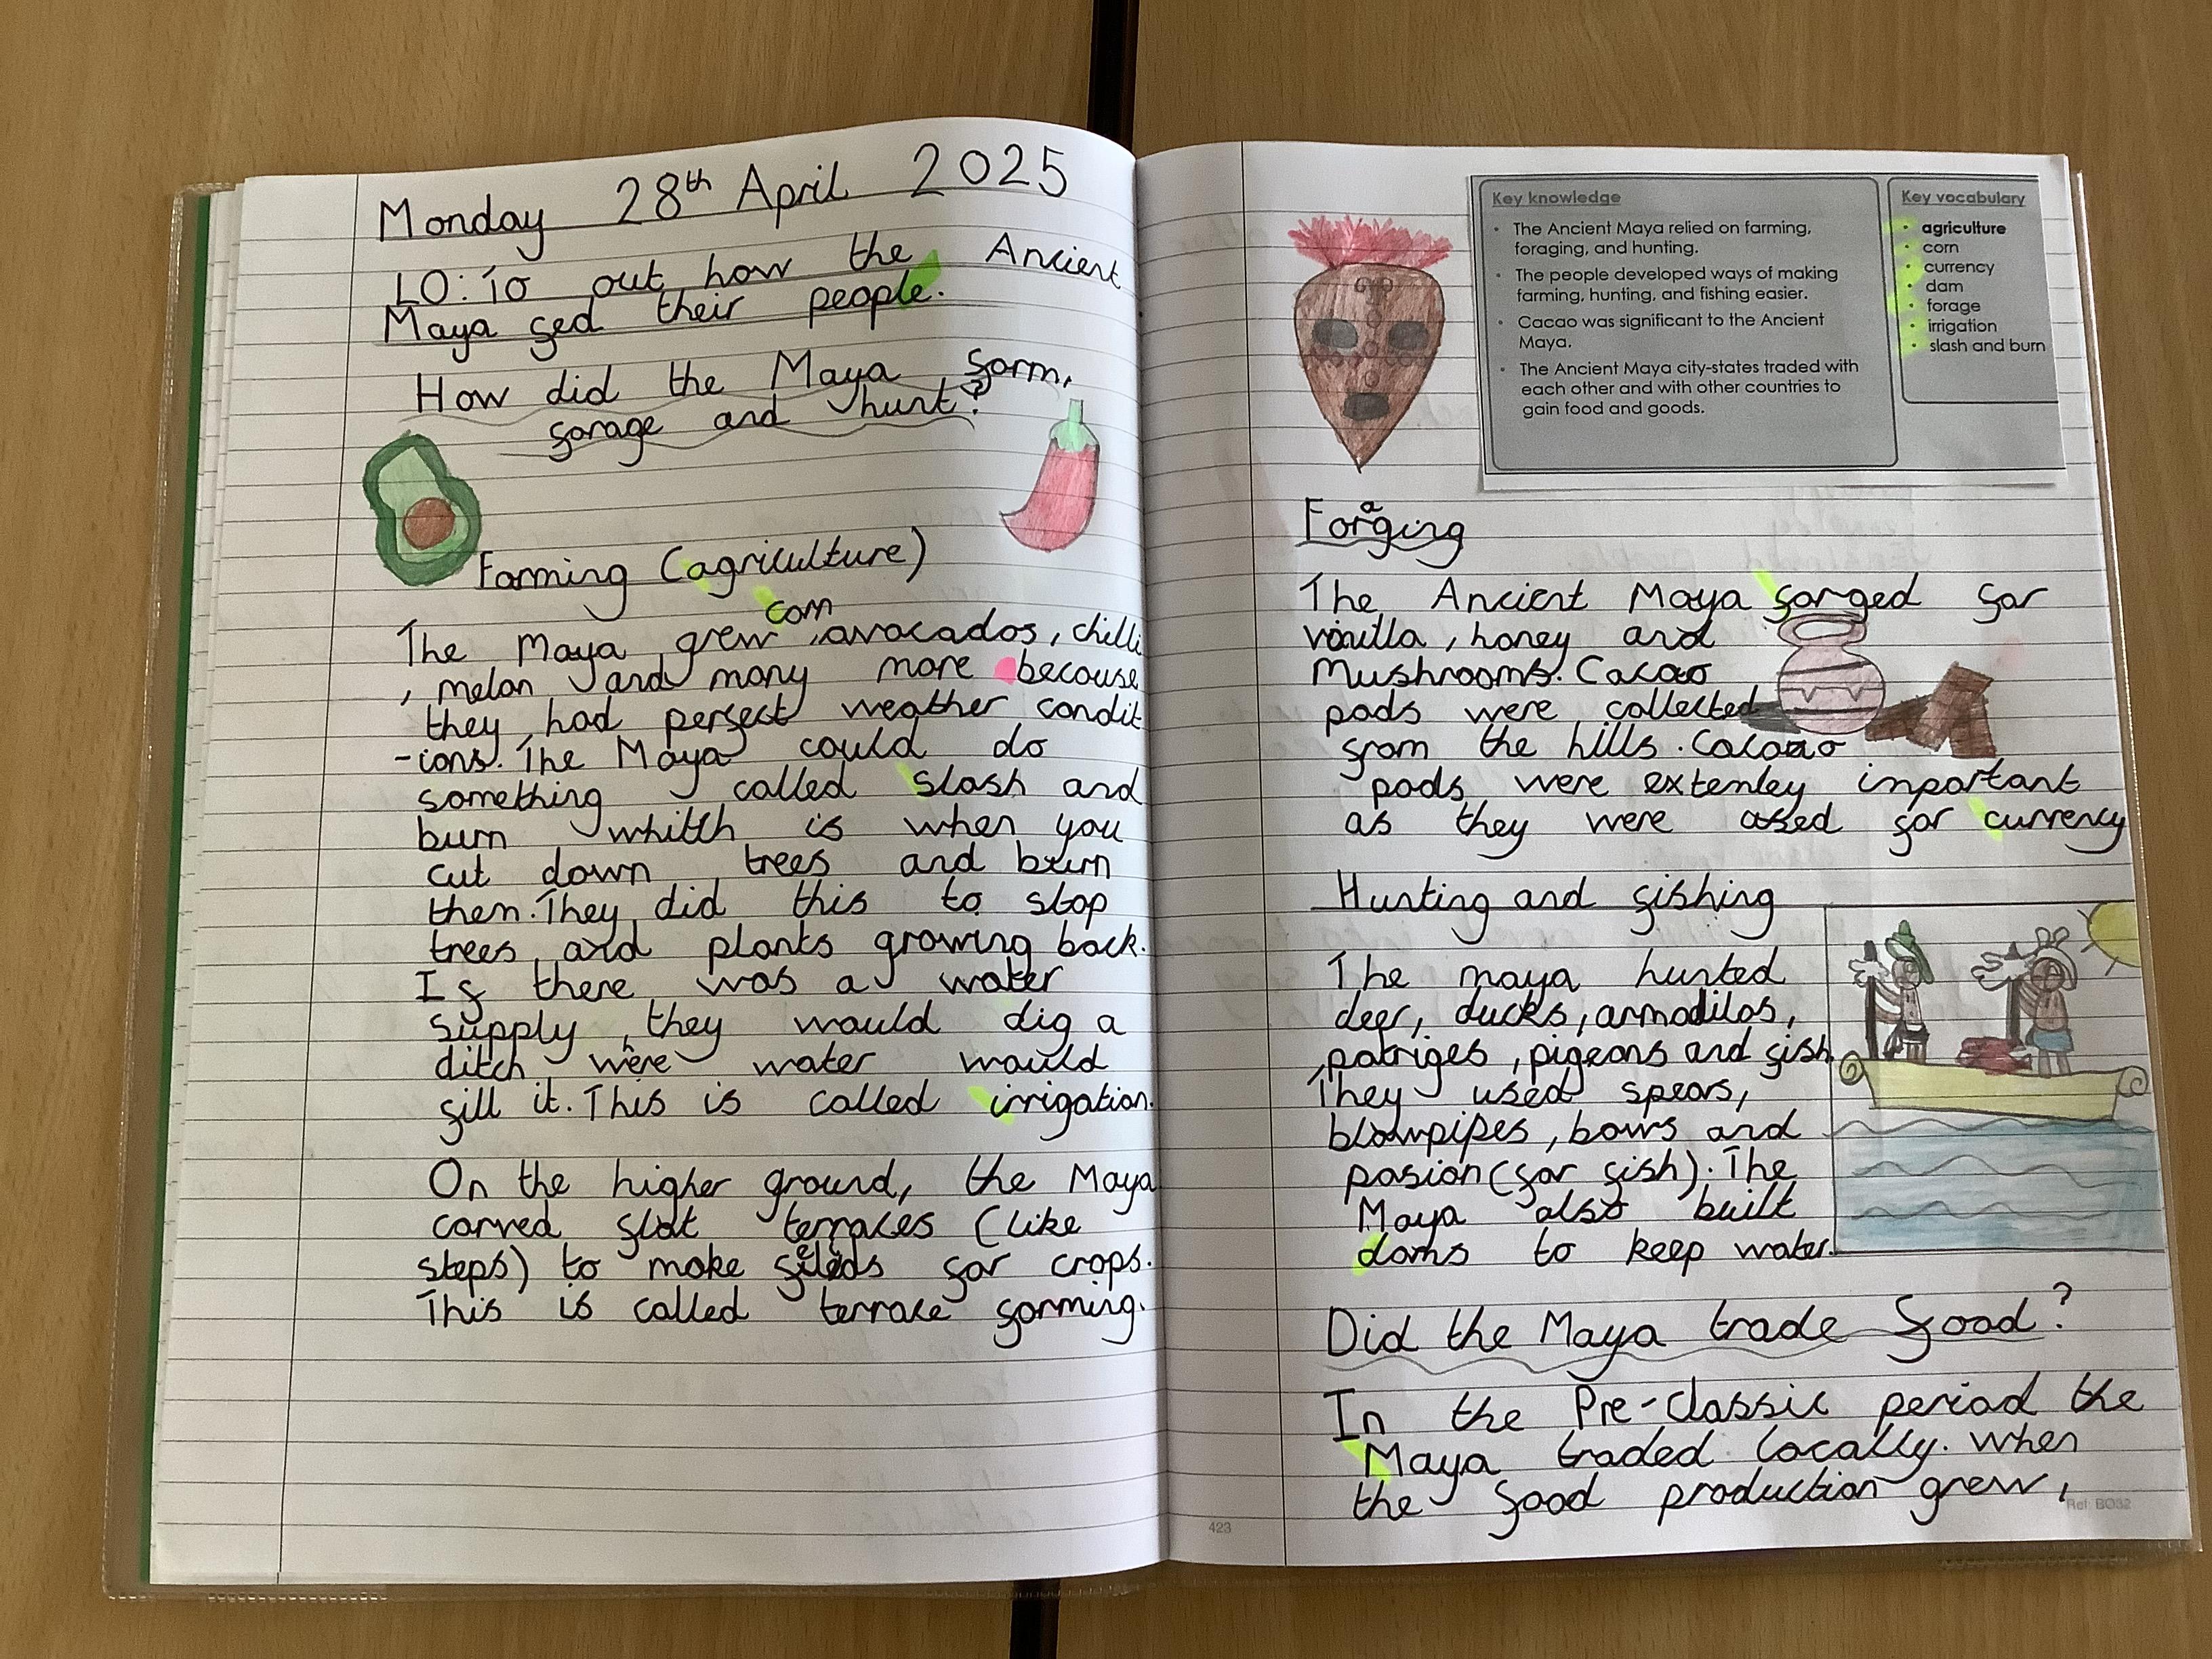 Monday 28th April 2025
LO: To out how the Ancient
Maya fed their people.
How did the Maya farm,
forage and hunt?
Farming (agriculture)
corn
The Maya grew , avocados, chilli
, melon and many more because
they had perfect weather condit
-ions. The Maya could do
something called slash and
burn whitch is when you
cut down trees and burn
them. They did this to stop
trees and plants growing back.
If there was a water
supply, they would dig a
ditch were water would
fill it. This is called irrigation.
On the higher ground, the Maya
carved flat terraces (like
steps) to make fields for crops.
This is called terrace farming.
Key knowledge
• The Ancient Maya relied on farming,
foraging, and hunting.
• The people developed ways of making
farming, hunting, and fishing easier.
• Cacao was significant to the Ancient
Maya.
• The Ancient Maya city-states traded with
each other and with other countries to
gain food and goods.
Key vocabulary
• agriculture
• corn
• currency
• dam
• forage
• irrigation
• slash and burn
Foraging
The Ancient Maya forged for
vanilla, honey and
Mushrooms. Cacao
pods were collected
from the hills. Cacao
pods were extemley important
as they were used for currency
Hunting and fishing
The maya hunted
deer, ducks, armadilos,
patriges, pigeons and fish.
They used spears,
blowpipes, bows and
posion (for fish). The
Maya also built
dams to keep water.
Did the Maya trade food?
In the Pre-classic period the
Maya traded locally. When
the food production grew,
423
Ref: BO32